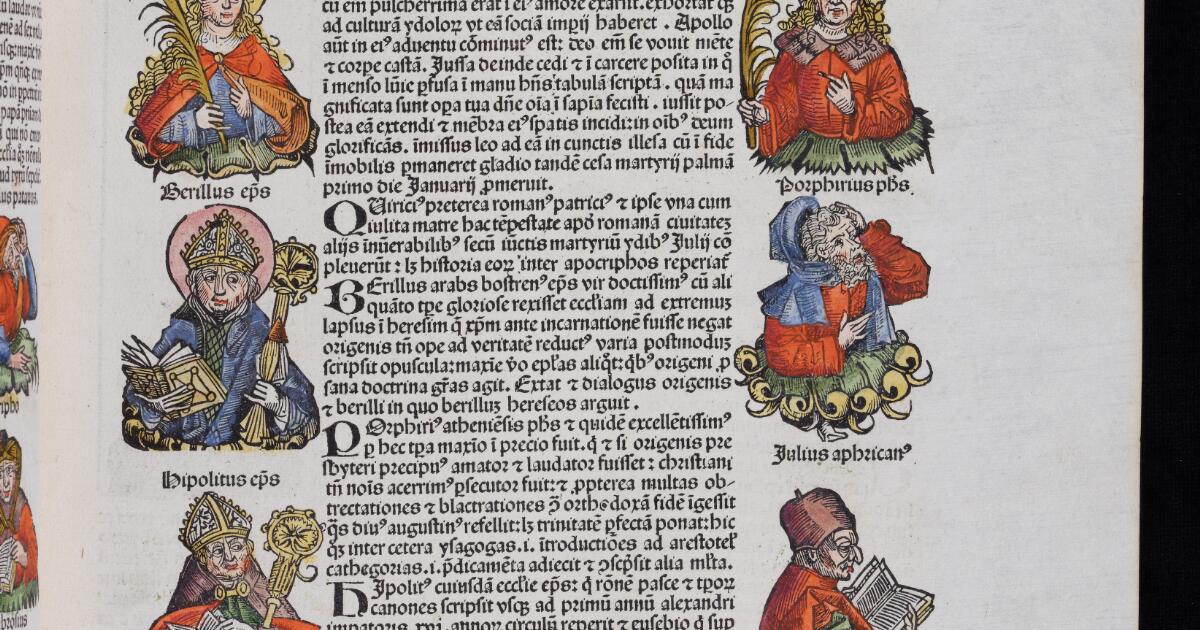 cū em pulcherrima erat i ei' amore exarsit. exhortat' q̄
ad culturā ydoloꝝ vt eā sociā impij haberet . Apollo
aūt in ei' aduentu cōminut' est: deo em̄ se vouit mēte
⁊ corpe castā. Jussa deinde cedi ⁊ i carcere posita in q̄
i menso lūie ꝑfusa i manu hn̄s tabulā scriptā . quā ma
gnificata sunt oꝑa tua dn̄e oīa i sapīa fecisti . iussit po-
stea eā extendi ⁊ mēbra ei' spatis incidi: in oīb' deum
glorificās. īmissus leo ad eā in cunctis illesa cū i fide
imobilis ꝑmaneret gladio tandē cesa martyrij palmā
primo die Januarij ꝓmeruit.
Berillus ep̄s
Porphirius ph̄s
QUirici' preterea roman' patrici' ⁊ ipse vna cum
iulita matre hac tēpestate apd' romanā ciuitatez
alijs inūerabilib' secū iūctis martyriū ydib' Julij cō
pleuerūt : lꝫ historia eoꝝ inter apocriphos reperiat'
BErillus arabs bostren' ep̄s vir doctissim' cū ali
quāto tp̄e gloriose rexisset eccl'iam ad extremuz
lapsus i heresim q̄ xp̄m ante incarnationē fuisse negat
origenis tn̄ ope ad veritatē reduct' varia postmoduz
scripsit opuscula: maxīe v̄o ep̄las aliq̄t: qb' origeni ꝓ
sana doctrina gr̄as agit. Extat ⁊ dialogus origenis
⁊ berilli in quo berilluz hereseos arguit .
POrphiri' atheniēsis ph̄s ⁊ quidē excellētissim'
ꝑ hec tp̄a maxīo i precio fuit. q̄ ⁊ si origenis pre
sbyteri precipu' amator ⁊ laudator fuisset : christiani
tn̄ noīs acerrim' ꝑsecutor fuit: ⁊ ꝓpterea multas ob-
trectationes ⁊ blactrationes ↄ̄ orthodoxā fidē īgessit
q̄s diu' augustin' refellit: lꝫ trinitatē ꝑfectā ponat: hic
qꝫ inter cetera ysagogas .i. ītroductiōes ad arestotel'
cathegorias .i. p̄dicamēta adiecit ⁊ ↄscp̄sit alia ml'ta.
Hipolitus ep̄s
Julius aphrican'
HIpolit' cuiusdā eccl'ie ep̄s: q̄ rōnē pasce ⁊ tp̄oꝝ
canones scripsit vsqꝫ ad primū annū alexandri
impatoris xvi. annoꝝ circulū reperit ⁊ eusebio q̄ sup